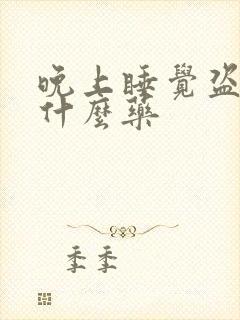 晚上睡覺盜
什麼藥
季季